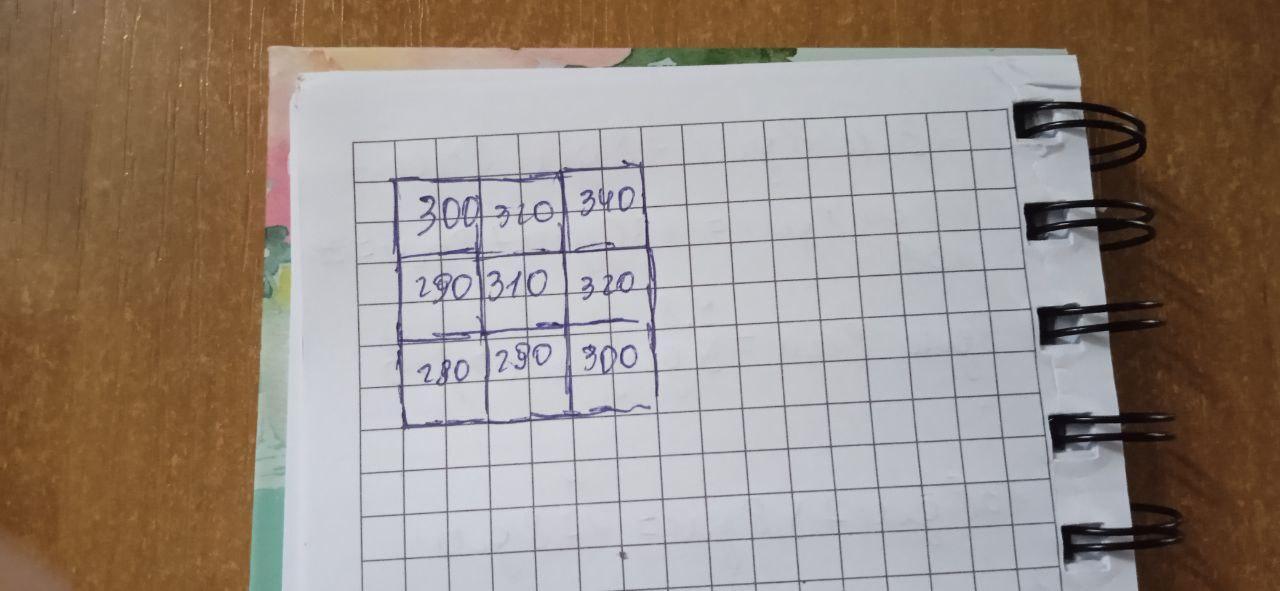 300 320 340
290 310 320
280 290 300